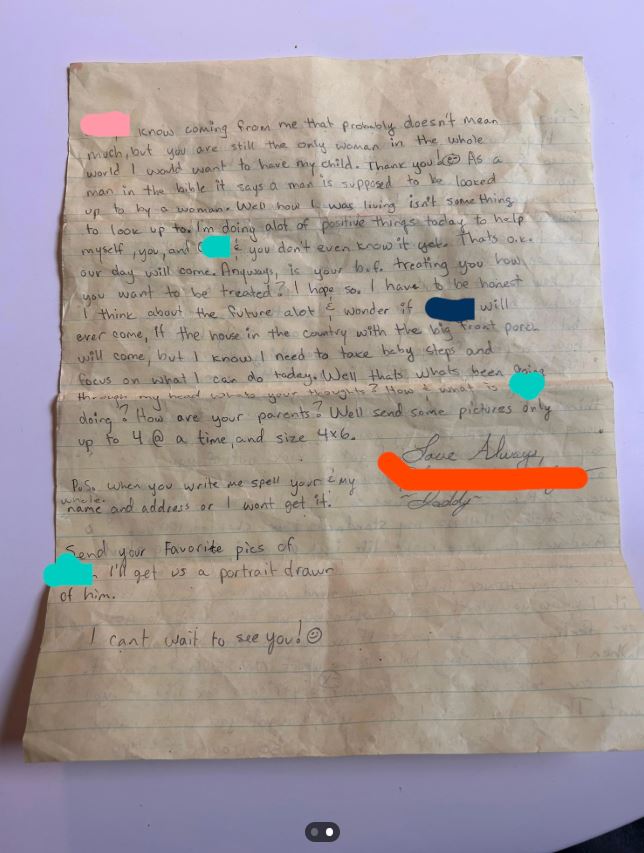 know coming from me that probably doesn't mean
much, but you are still the only woman in the whole
world I would want to have my child. Thank you! As a
man in the bible it says a man is supposed to be looked
up to by a woman. Well how I was living isn't something
to look up to. I'm doing alot of positive things today to help
myself, you, and & you don't even know it yet. Thats o.k.
our day will come. Anyways, is your b.f. treating you how
you want to be treated? I hope so. I have to be honest
I think about the future alot & wonder if will
ever come, if the house in the country with the big front porch
will come, but I know I need to take baby steps and
focus on what I can do today. Well thats whats been going
through my head whats your thoughts? How & what is
doing? How are your parents? Well send some pictures only
up to 4 @ a time, and size 4x6.
Love Always,
~Daddy~
P.S. when you write me spell your & my
whole
name and address or I wont get it.
Send your Favorite pics of
I'll get us a portrait drawn
of him.
I cant wait to see you! ☺